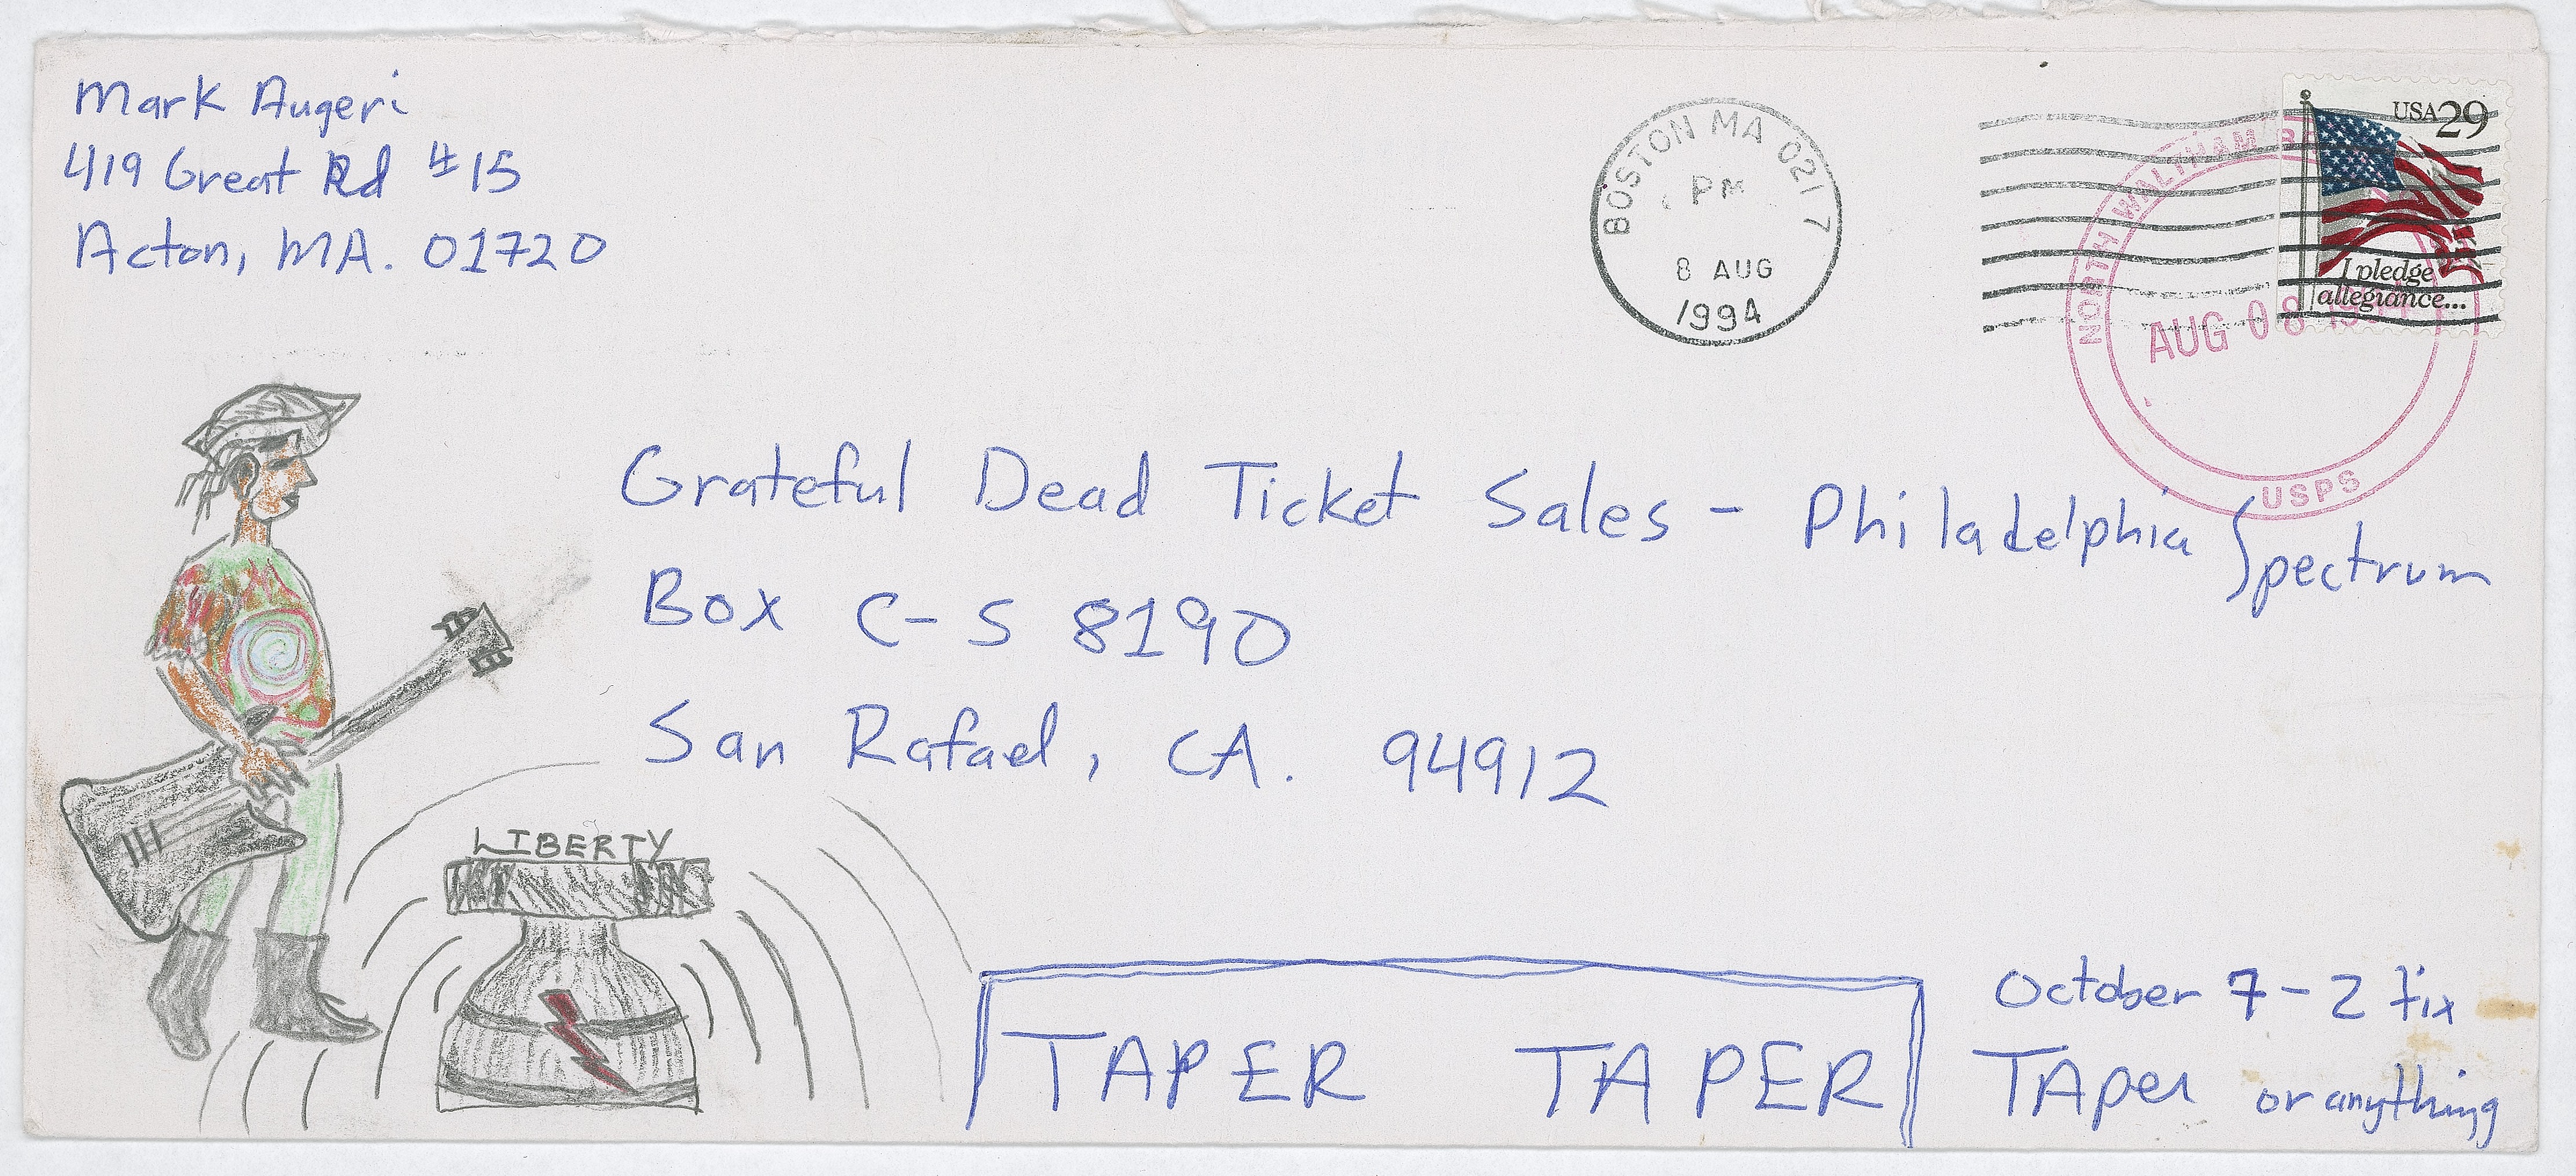 Mark Augeri
419 Great Rd #15
Acton, MA. 01720
BOSTON MA 021 7
PM
8 AUG
1994
USA 29
I pledge
allegiance...
NORTH WALTHAM
AUG 08
USPS
Grateful Dead Ticket Sales - Philadelphia Spectrum
Box C-S 8190
San Rafael, CA. 94912
LIBERTY
TAPER TAPER
October 7 - 2 tix
TAper or anything